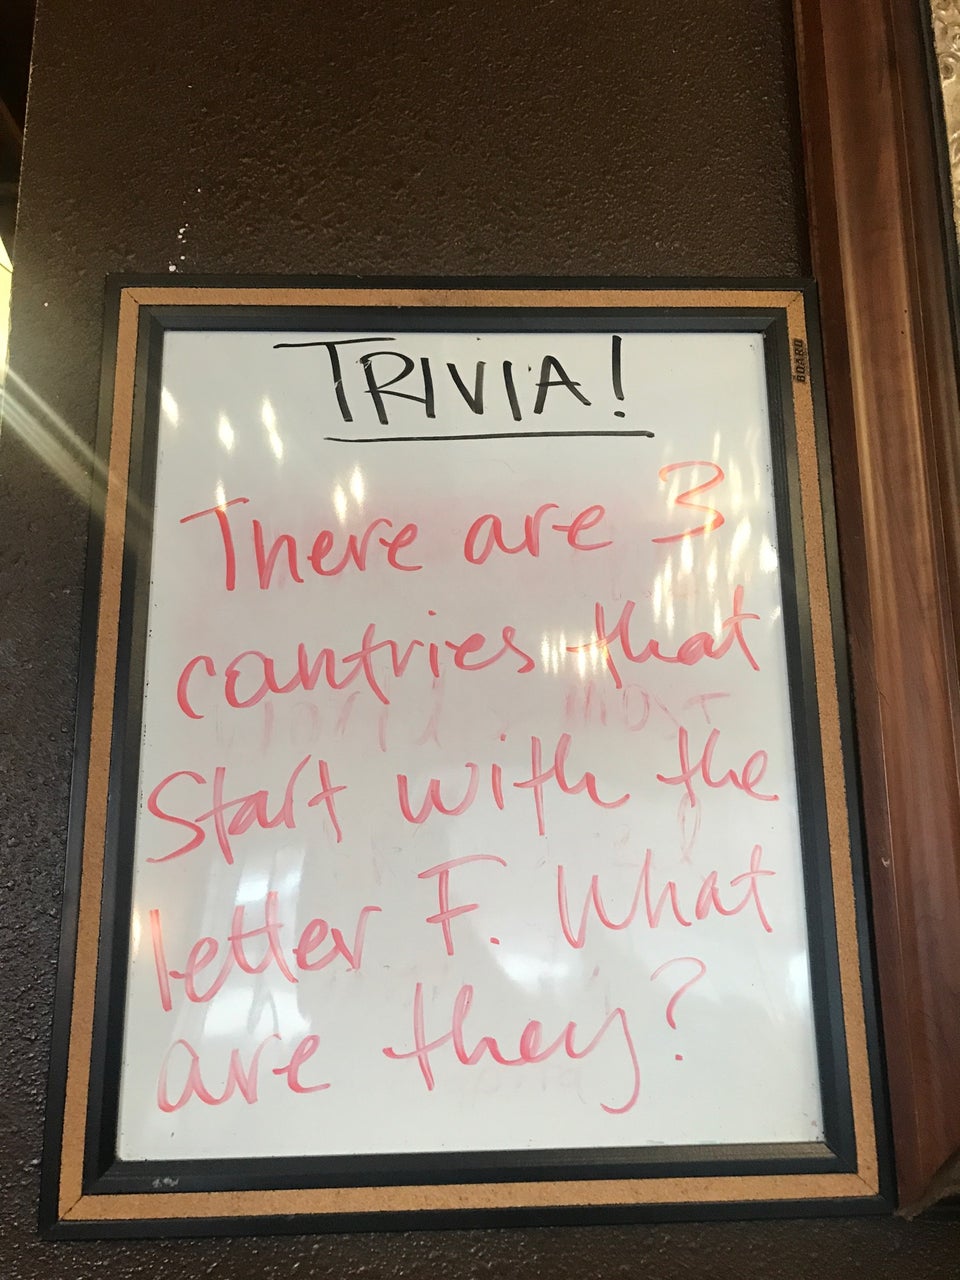 TRIVIA!
There are 3
countries that
Start with the
letter F. What
are they?
BOARD